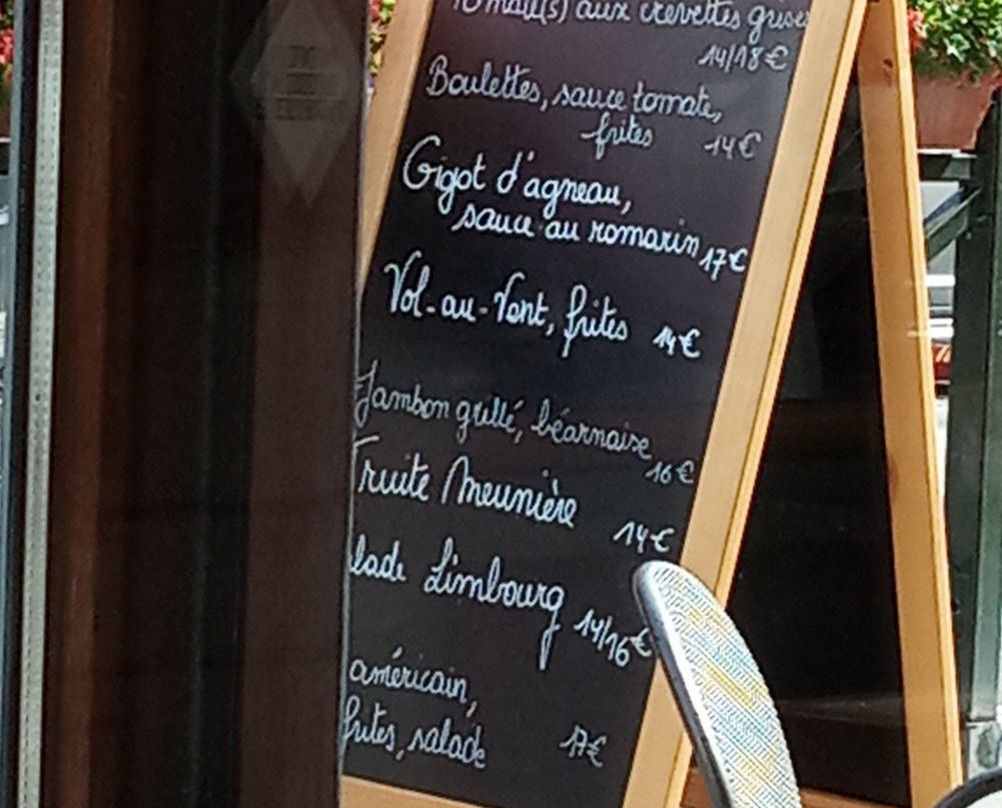 aux crevettes grises
14/18€
Boulettes, sauce tomate,
frites 14€
Gigot d'agneau,
sauce au romarin 17€
Vol-au-Vent, frites 14€
Jambon grillé, béarnaise
16€
Truite Meunière 14€
lade Limbourg 14/16€
américain,
frites, salade 17€